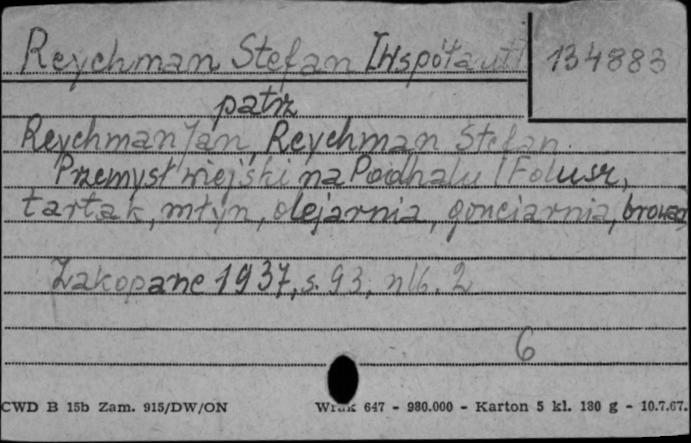 Reychman Stefan [Współaut]
134883
patrz
Reychman Jan, Reychman Stefan.
Przemysł wiejski na Podhalu (Folusz,
tartak, młyn, olejarnia, gonciarnia, browar)
Zakopane 1937, s. 93, nlb. 2
6
CWD B 15b Zam. 915/DW/ON Wrak 647 - 980.000 - Karton 5 kl. 180 g - 10.7.67.